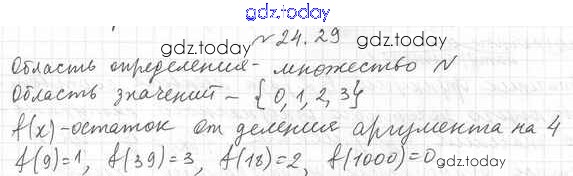 gdz.today
№24.29 gdz.today
gdz.today
Область определения - множество N
Область значений - {0, 1, 2, 3}
f(x) - остаток от деления аргумента на 4
f(9)=1, f(39)=3, f(18)=2, f(1000)=0
gdz.today gdz.today gdz.today